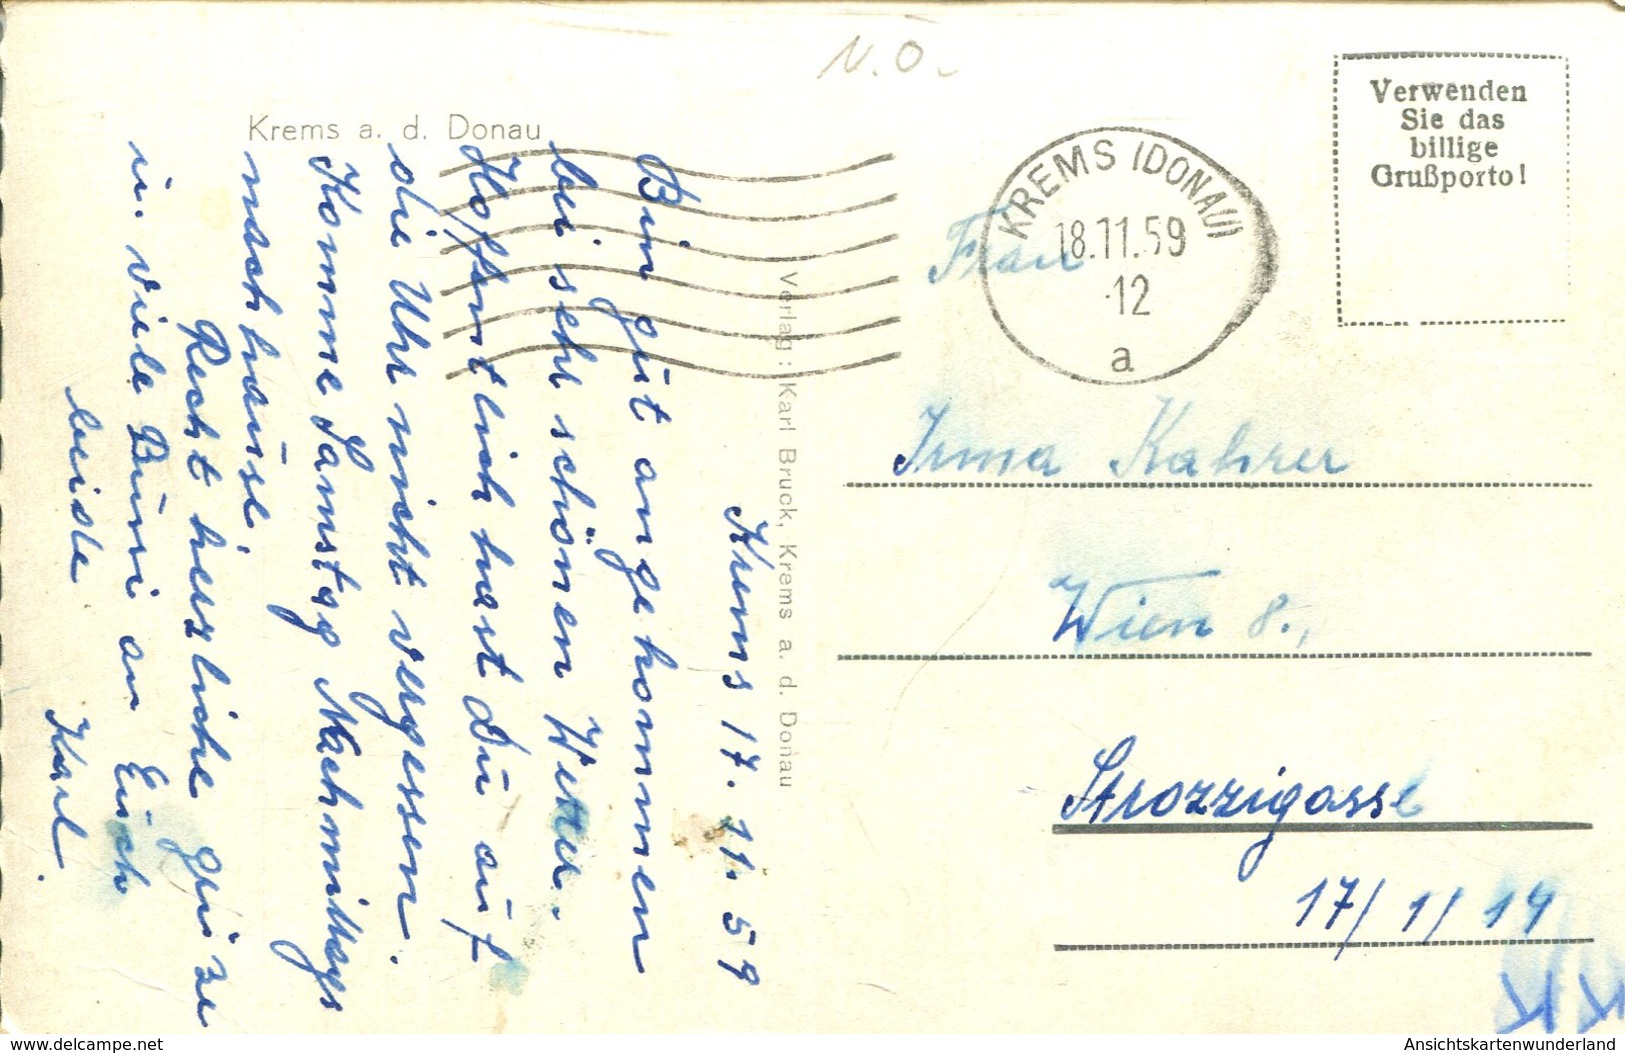 N.Ö.
Krems a. d. Donau
Krems 17. 11. 59
Bin gut angekommen
bei sehr schönen Wetter.
Hoffentlich hast du auf
die Uhr nicht vergessen.
Komme Samstag Nachmittags
nach hause.
Recht herzliche Grüße
u. viele Bussi an Euch
beide
Karl.
Verlag: Karl Bruck, Krems a. d. Donau
KREMS (DONAU)
18.11.59
·12
a
Verwenden
Sie das
billige
Grußporto!
Frau
Irma Kahrer
Wien 8.,
Strozzigasse
17/1/14
delcampe.net
Ansichtskartenwunderland